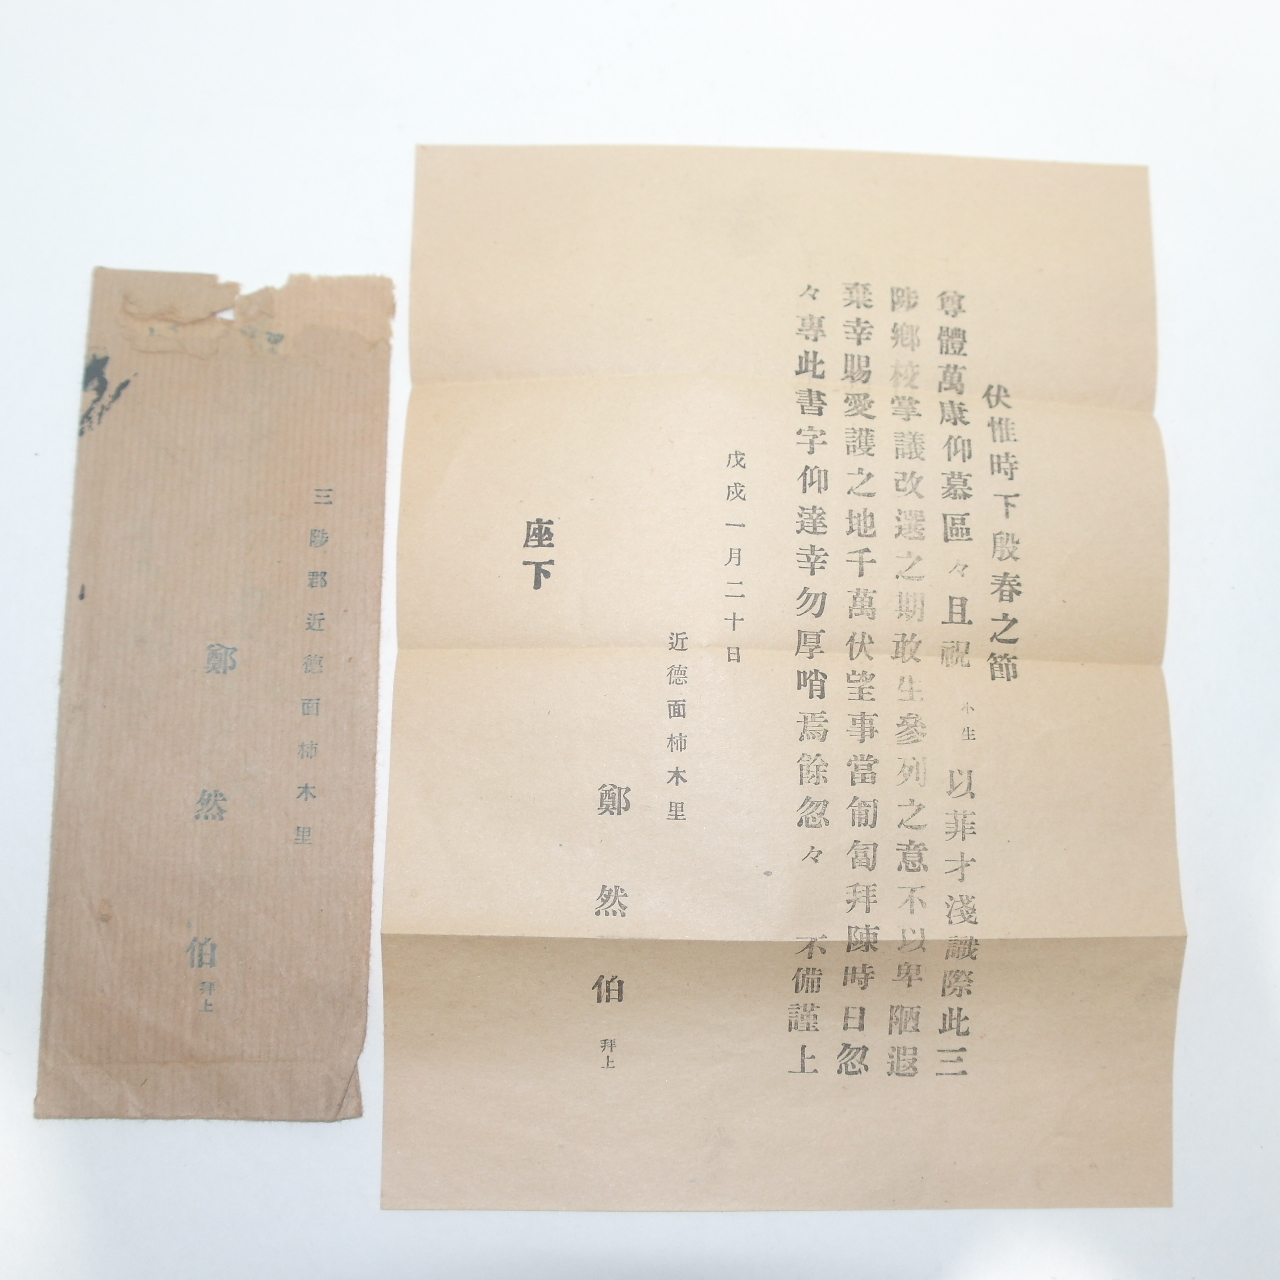 伏惟時下殷春之節
尊體萬康仰慕區々且祝小生以菲才淺識際此三
陟鄕校掌議改選之期敢生參列之意不以卑陋遐
棄幸賜愛護之地千萬伏望事當匍匐拜陳時日忽
々專此書字仰達幸勿厚哨焉餘忽々不備謹上
戊戌一月二十日
近德面柿木里
鄭然伯拜上
座下
三陟郡近德面柿木里
鄭然伯拜上